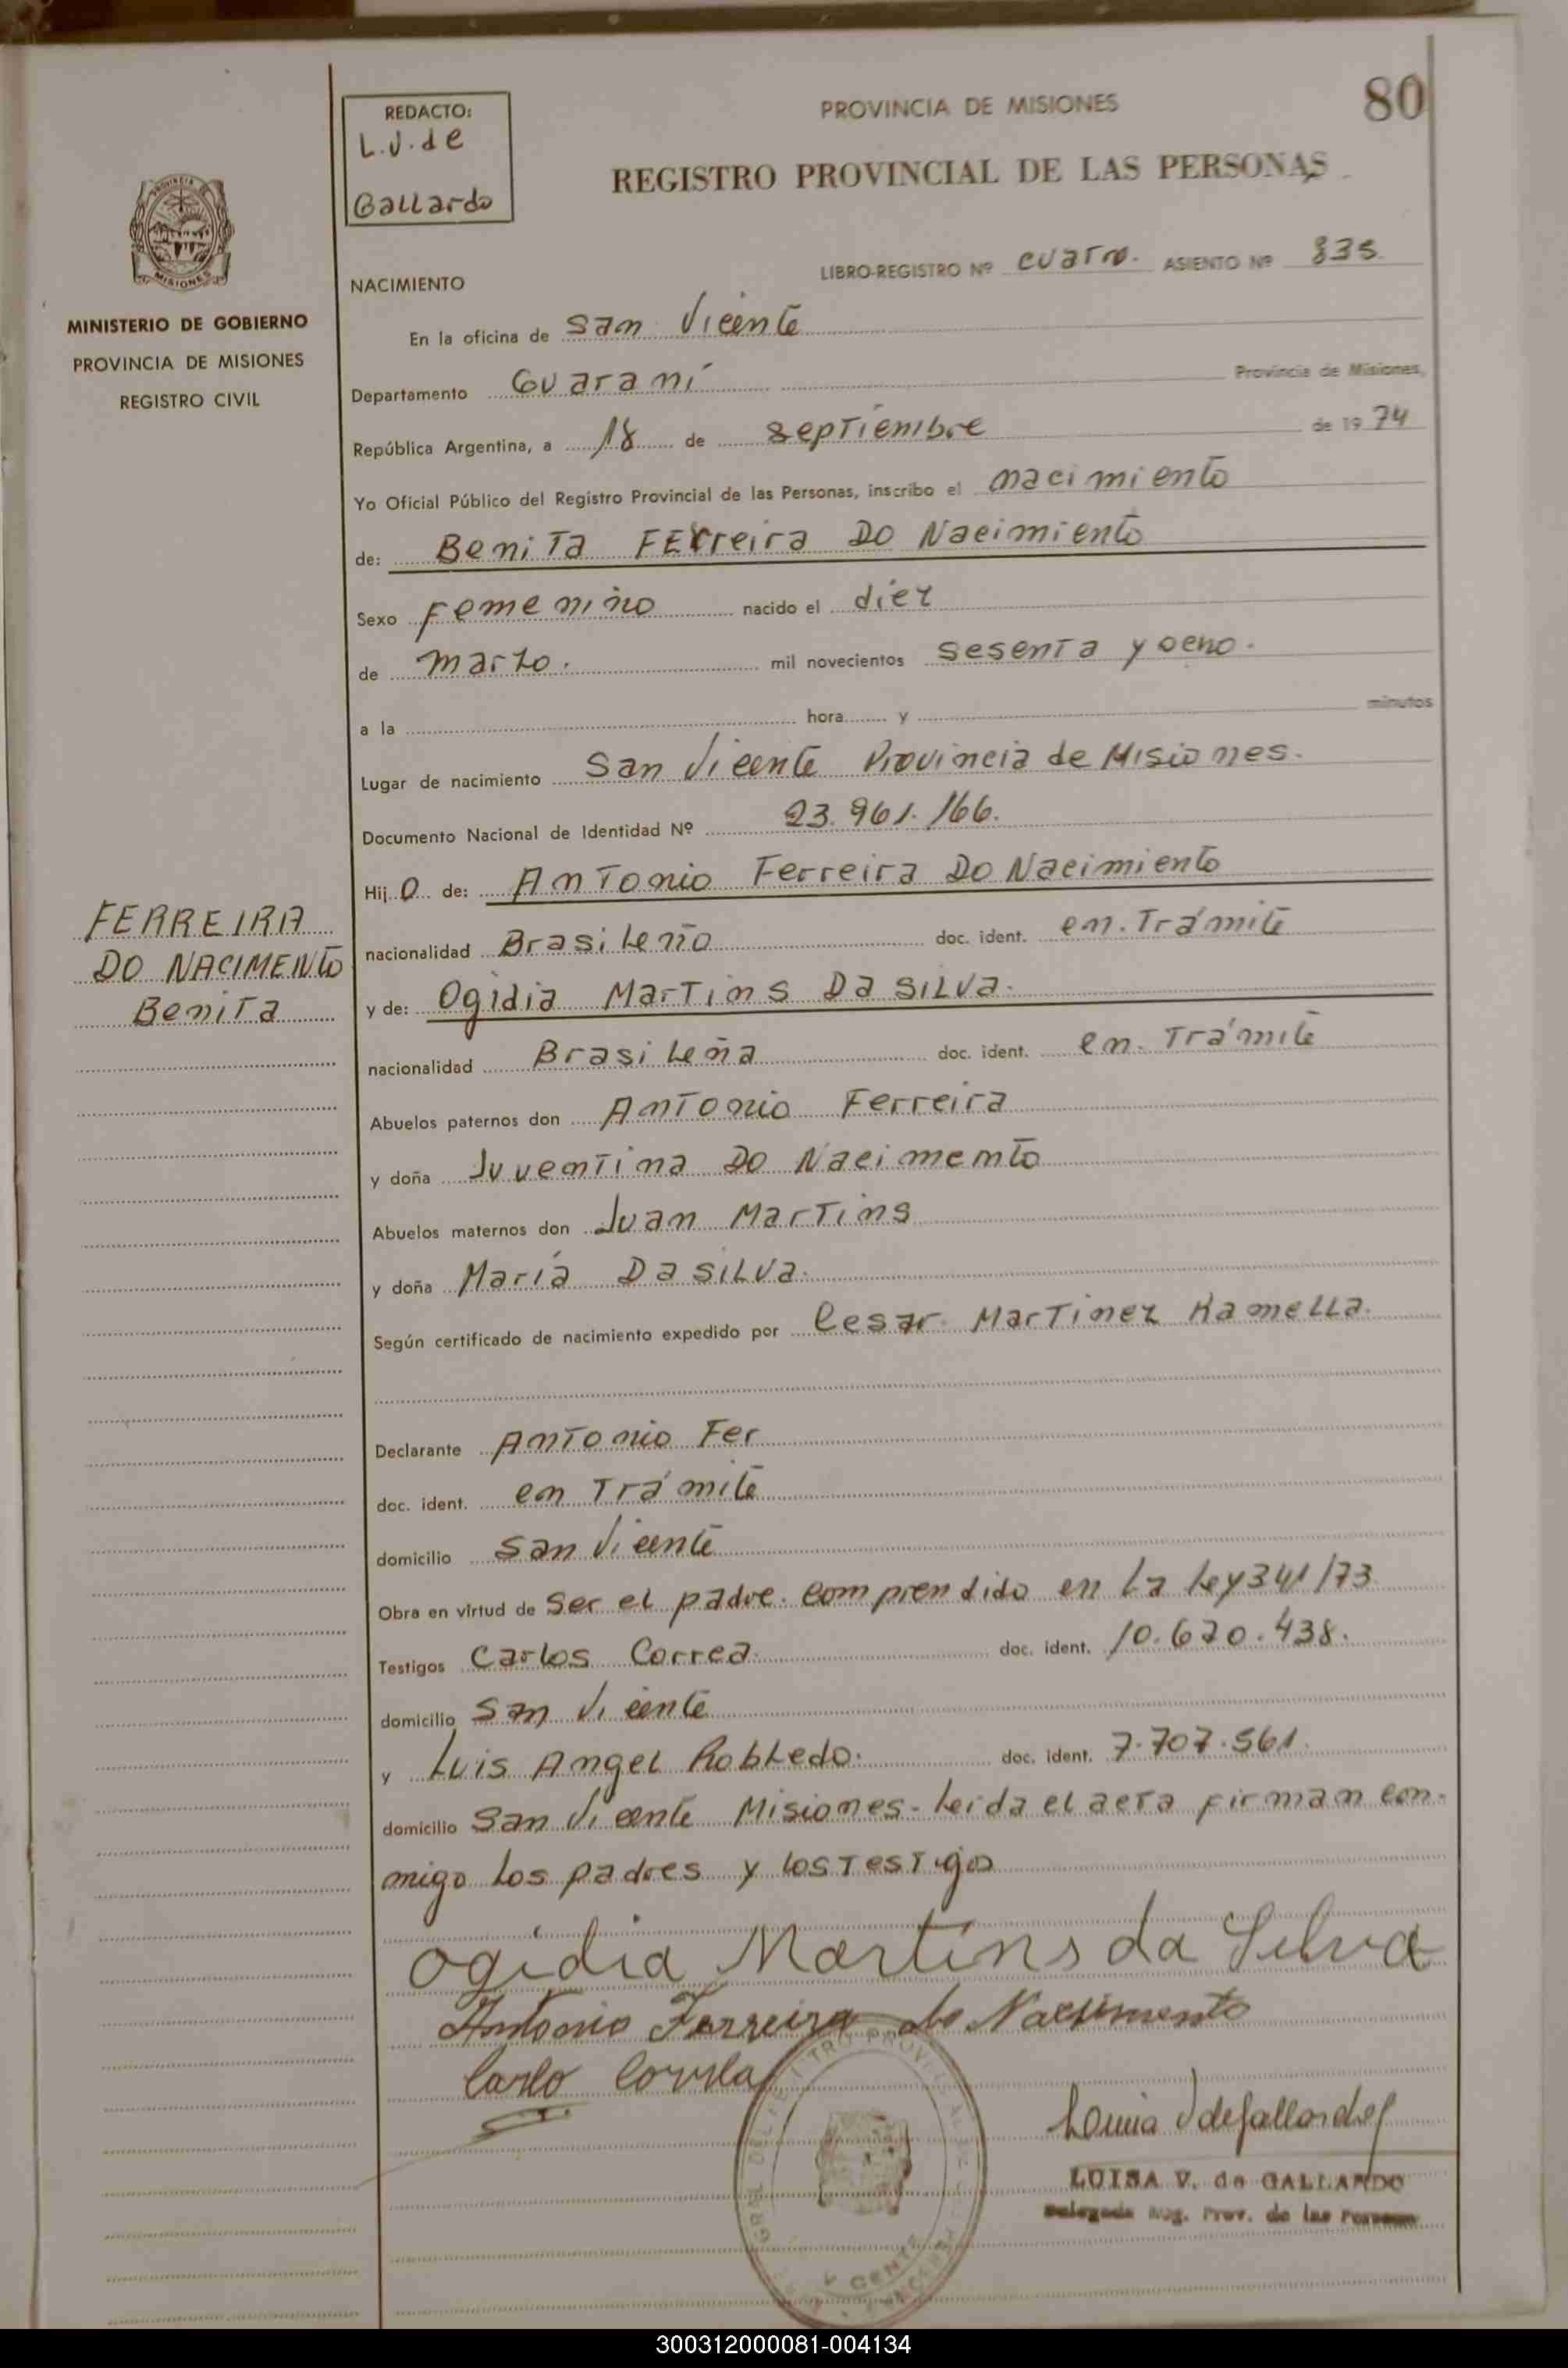 80
PROVINCIA DE MISIONES
REGISTRO PROVINCIAL DE LAS PERSONAS
REDACTO:
L.V. de
Gallardo
PROVINCIA DE
MISIONES
MINISTERIO DE GOBIERNO
PROVINCIA DE MISIONES
REGISTRO CIVIL
FERREIRA
DO NACIMENTO
Benita
NACIMIENTO
LIBRO-REGISTRO Nº cuarto. ASIENTO Nº 835.
En la oficina de San Vicente
Departamento Guaraní Provincia de Misiones,
República Argentina, a 18 de septiembre de 19 74
Yo Oficial Público del Registro Provincial de las Personas, inscribo el nacimiento
de: Benita Ferreira Do Nacimiento
Sexo Femenino nacido el diez
de marzo. mil novecientos sesenta y ocho.
a la hora y minutos
Lugar de nacimiento San Vicente Provincia de Misiones.
Documento Nacional de Identidad Nº 23.961.166.
Hij o de: Antonio Ferreira Do Nacimiento
nacionalidad Brasileño doc. ident. en. Trámite
y de: Ogidia Martins Da Silva.
nacionalidad Brasileña doc. ident. en. Trámite
Abuelos paternos don Antonio Ferreira
y doña Juventina Do Nacimemto
Abuelos maternos don Juan Martins
y doña María Da Silva.
Según certificado de nacimiento expedido por Cesar Martinez Ramella.
Declarante Antonio Fer
doc. ident. en Trámite
domicilio San Vicente
Obra en virtud de Ser el padre. comprendido en la ley 341/73
Testigos Carlos Correa. doc. ident. 10.620.438.
domicilio San Vicente
y Luis Angel Robledo. doc. ident. 7.707.561.
domicilio San Vicente Misiones- leida el acta firman con-
migo los padres y los testigos
Ogidia Martins da Silva
Antonio Ferreira do Nacimento
Carlo Correa
LUISA V. de GALLARDO
Delegada Reg. Prov. de las Personas
300312000081-004134